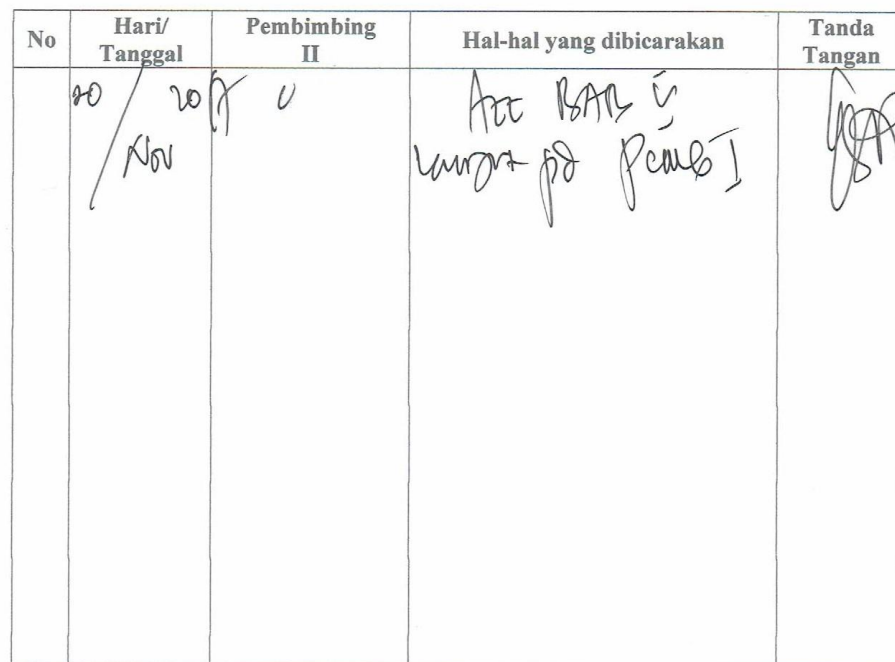 No Hari/ Tanggal Pembimbing II Hal-hal yang dibicarakan Tanda Tangan
20 / Nov 20 ACC BAB
lanjut pd Pemb I